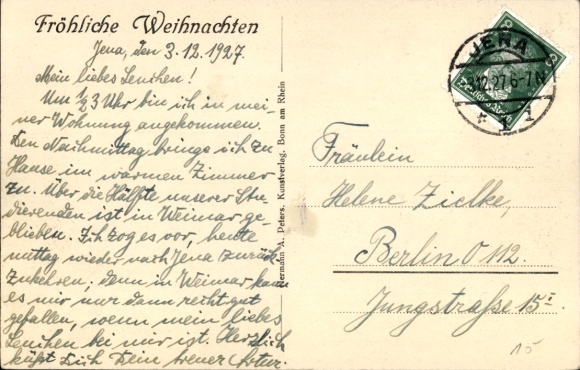 Fröhliche Weihnachten
Jena, den 3.12.1927.
Mein liebes Lenchen!
Um ½3 Uhr bin ich in mei-
ner Wohnung angekommen.
Den Nachmittag bringe ich zu
Hause, im warmen Zimmer
zu. Über die Hälfte unserer Stu-
dierenden ist in Weimar ge
blieben. Ich zog es vor, heute
mittag wieder nach Jena zurück-
zukehren; denn in Weimar kann
es mir nur dann recht gut
gefallen, wenn mein liebes
Lenchen bei mir ist. Herzlich
küßt Dich Dein treuer Artur.
Hermann A. Peters, Kunstverlag, Bonn am Rhein
JENA
3.12.27.6-7N
* 1
8 8
Deutsches Reich
Fräulein
Helene Zielke,
Berlin O 112.
Jungstraße 15 I.
15